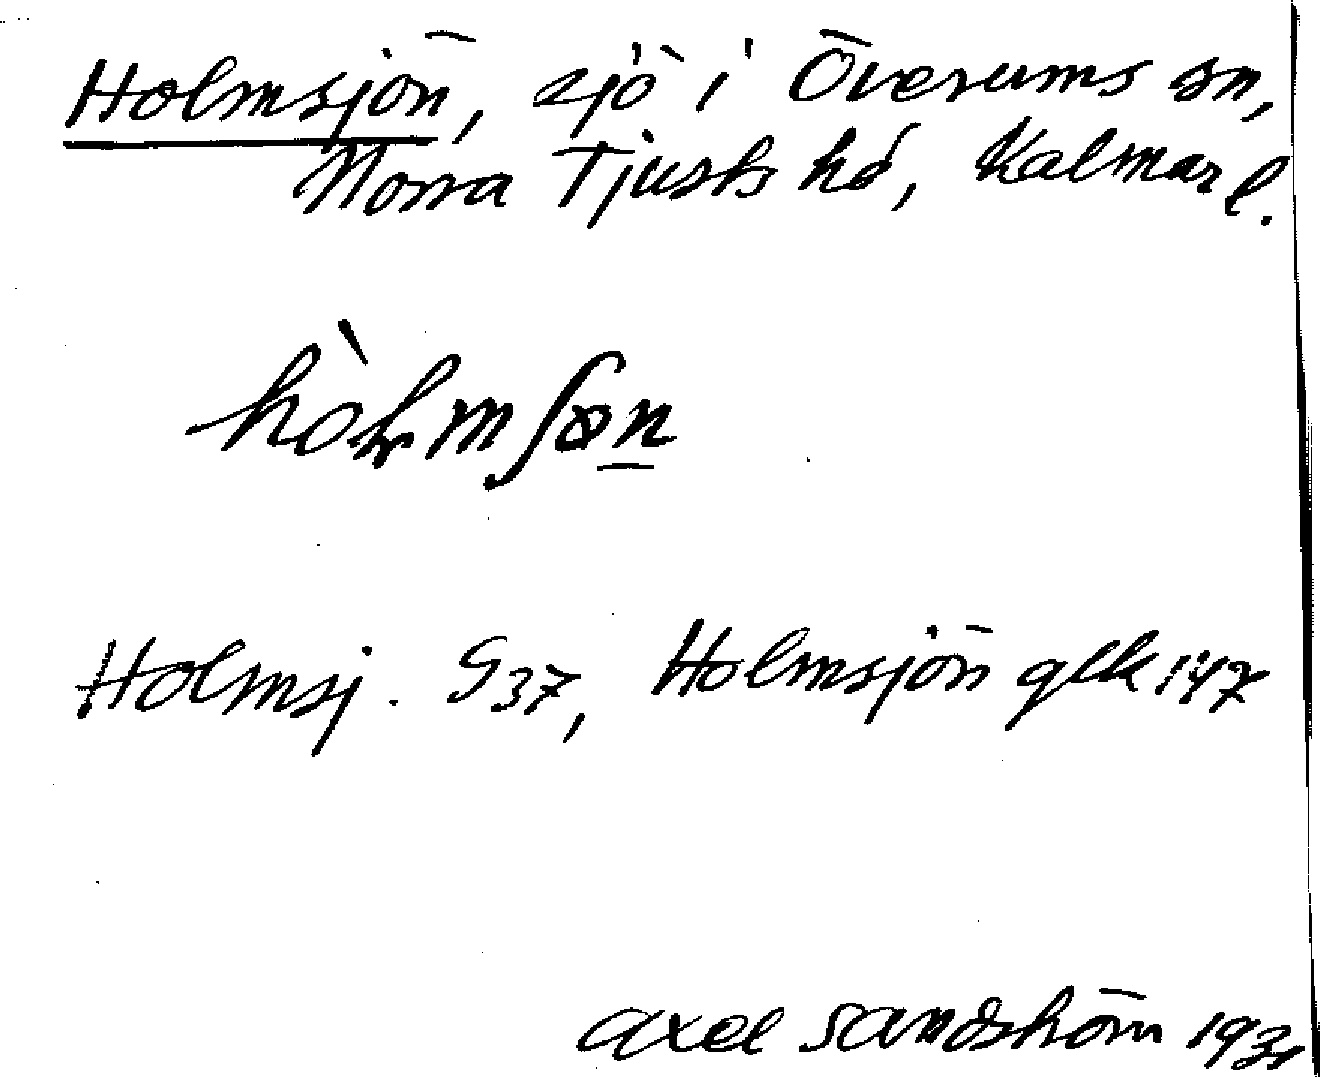 Holmsjön, sjö i Överums sn,
Norra Tjusts hd, Kalmar l.
Holmsj. S37, Holmsjön glk 147
Axel Sandström 1931